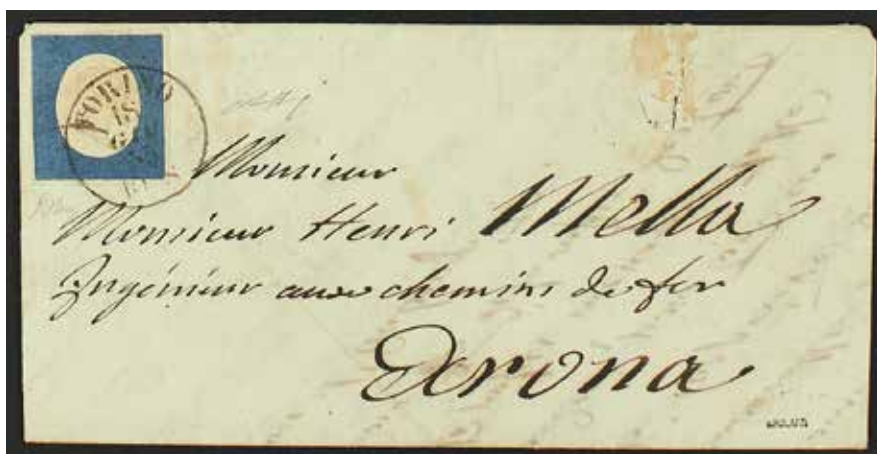 TORINO
18
Monsieur
Monsieur Henri Mella
Ingénieur aux chemins de fer
Arona